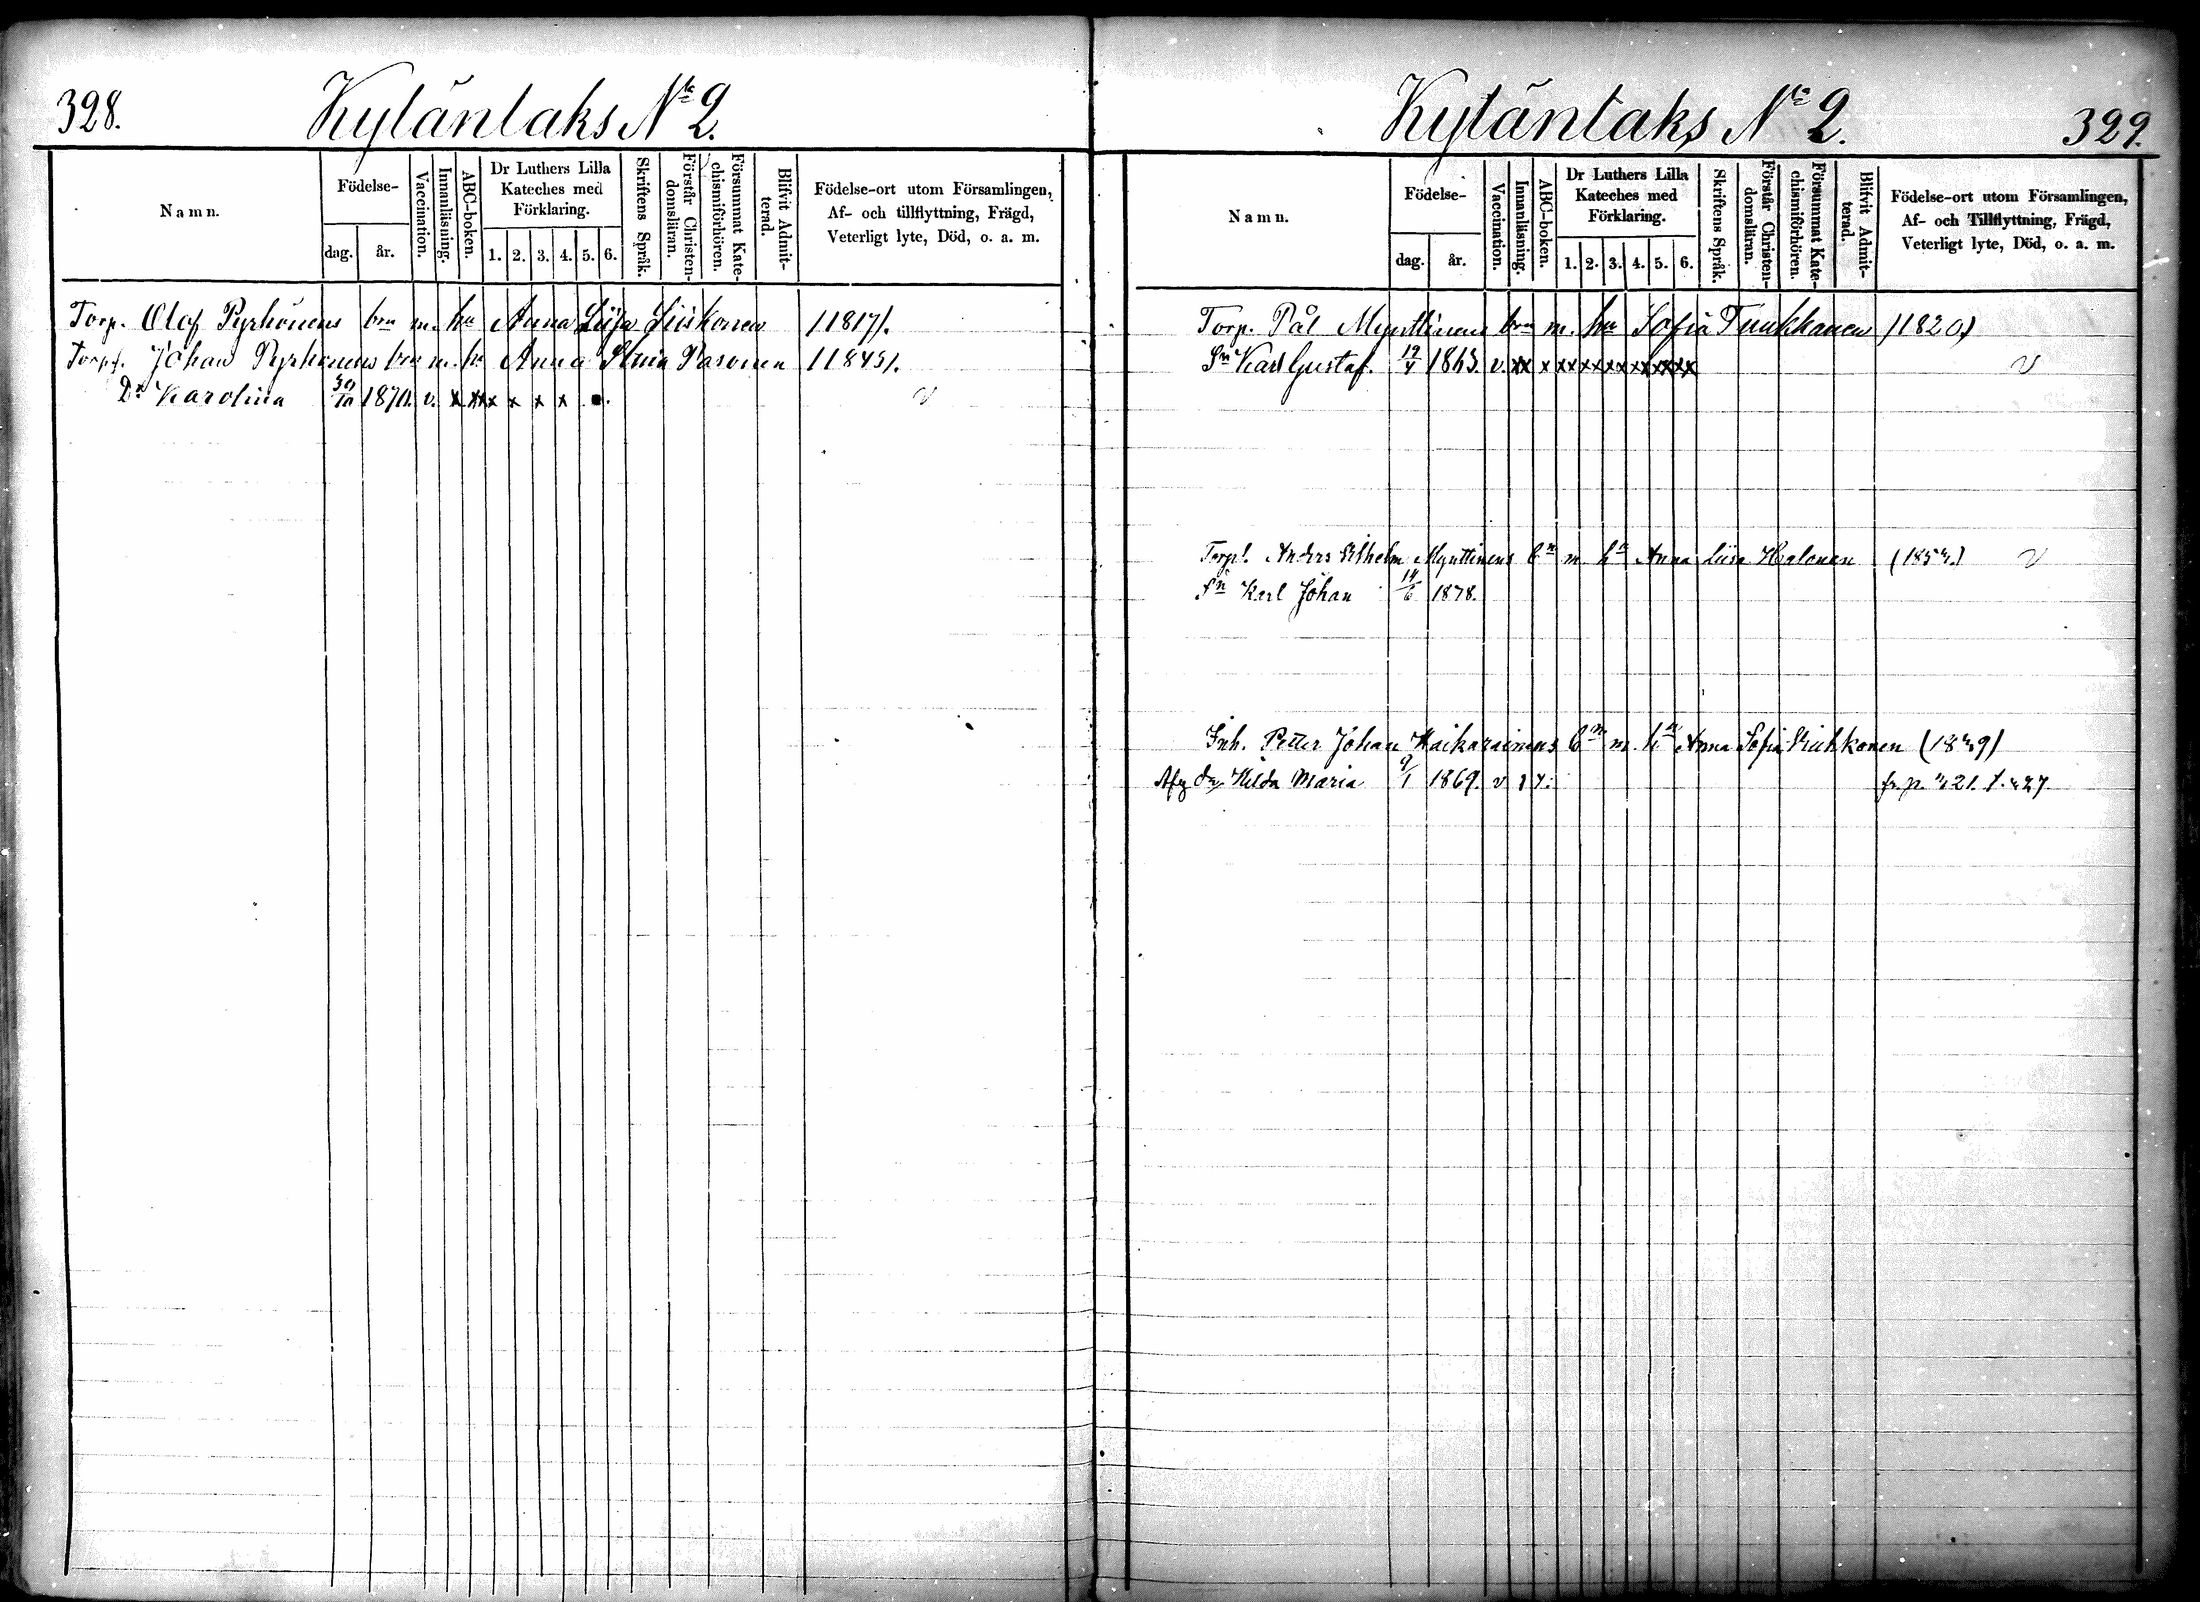 328.
Kyläntaks N:o 2.
Namn.
Födelse-
dag.
år.
Vaccination.
Innanläsning.
ABC-boken.
Dr Luthers Lilla
Kateches med
Förklaring.
1. 2. 3. 4. 5. 6.
Skriftens Språk.
Förstår Christen-
domsläran.
Försummat Kate-
chismiförhören.
Blifvit Admit-
terad.
Födelse-ort utom Församlingen,
Af- och tillflyttning, Frägd,
Veterligt lyte, Död, o. a. m.
Torp. Olof Pyrhönens brn m. hu Anna Liisa (1817).
Torpf. Johan Pyrhönens brn m. hu Anna Stina Pasonen (1843).
Dr Karolina 30/10 1870. v. x xx x x x x . v
Kyläntaks N:o 2.
329.
Namn.
Födelse-
dag.
år.
Vaccination.
Innanläsning.
ABC-boken.
Dr Luthers Lilla
Kateches med
Förklaring.
1. 2. 3. 4. 5. 6.
Skriftens Språk.
Förstår Christen-
domsläran.
Försummat Kate-
chismiförhören.
Blifvit Admit-
terad.
Födelse-ort utom Församlingen,
Af- och Tillflyttning, Frägd,
Veterligt lyte, Död, o. a. m.
Torp. Pål Mynttinens brn m. hu Sofia Tuukkanen (1820)
Sn Karl Gustaf. 19/4 1863. v. xx x x x x x x x x x x x v
Torpf. Anders Vilhelm Mynttinens bn m hu Anna Liisa Halonen (1854.) v
Sn Karl Johan 14/6 1878.
Inh. Petter Johan Haikarainens bn m. hu Anna Sofia (1849)
Afg dr Hilda Maria 9/1 1869. v fr. p. 421. t. 427.